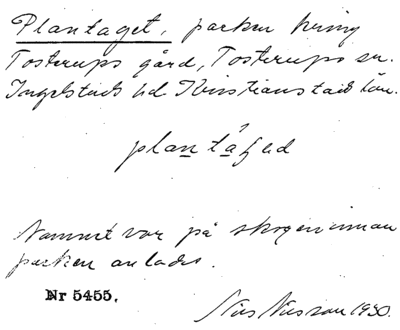 Plantaget, parken kring
Tosterups gård, Tosterups sn.
Ingelstads hd Kristianstads län.
Namnet var på skogen innan
parken anlades.
Nr 5455.
Nils Nilsson 1930.